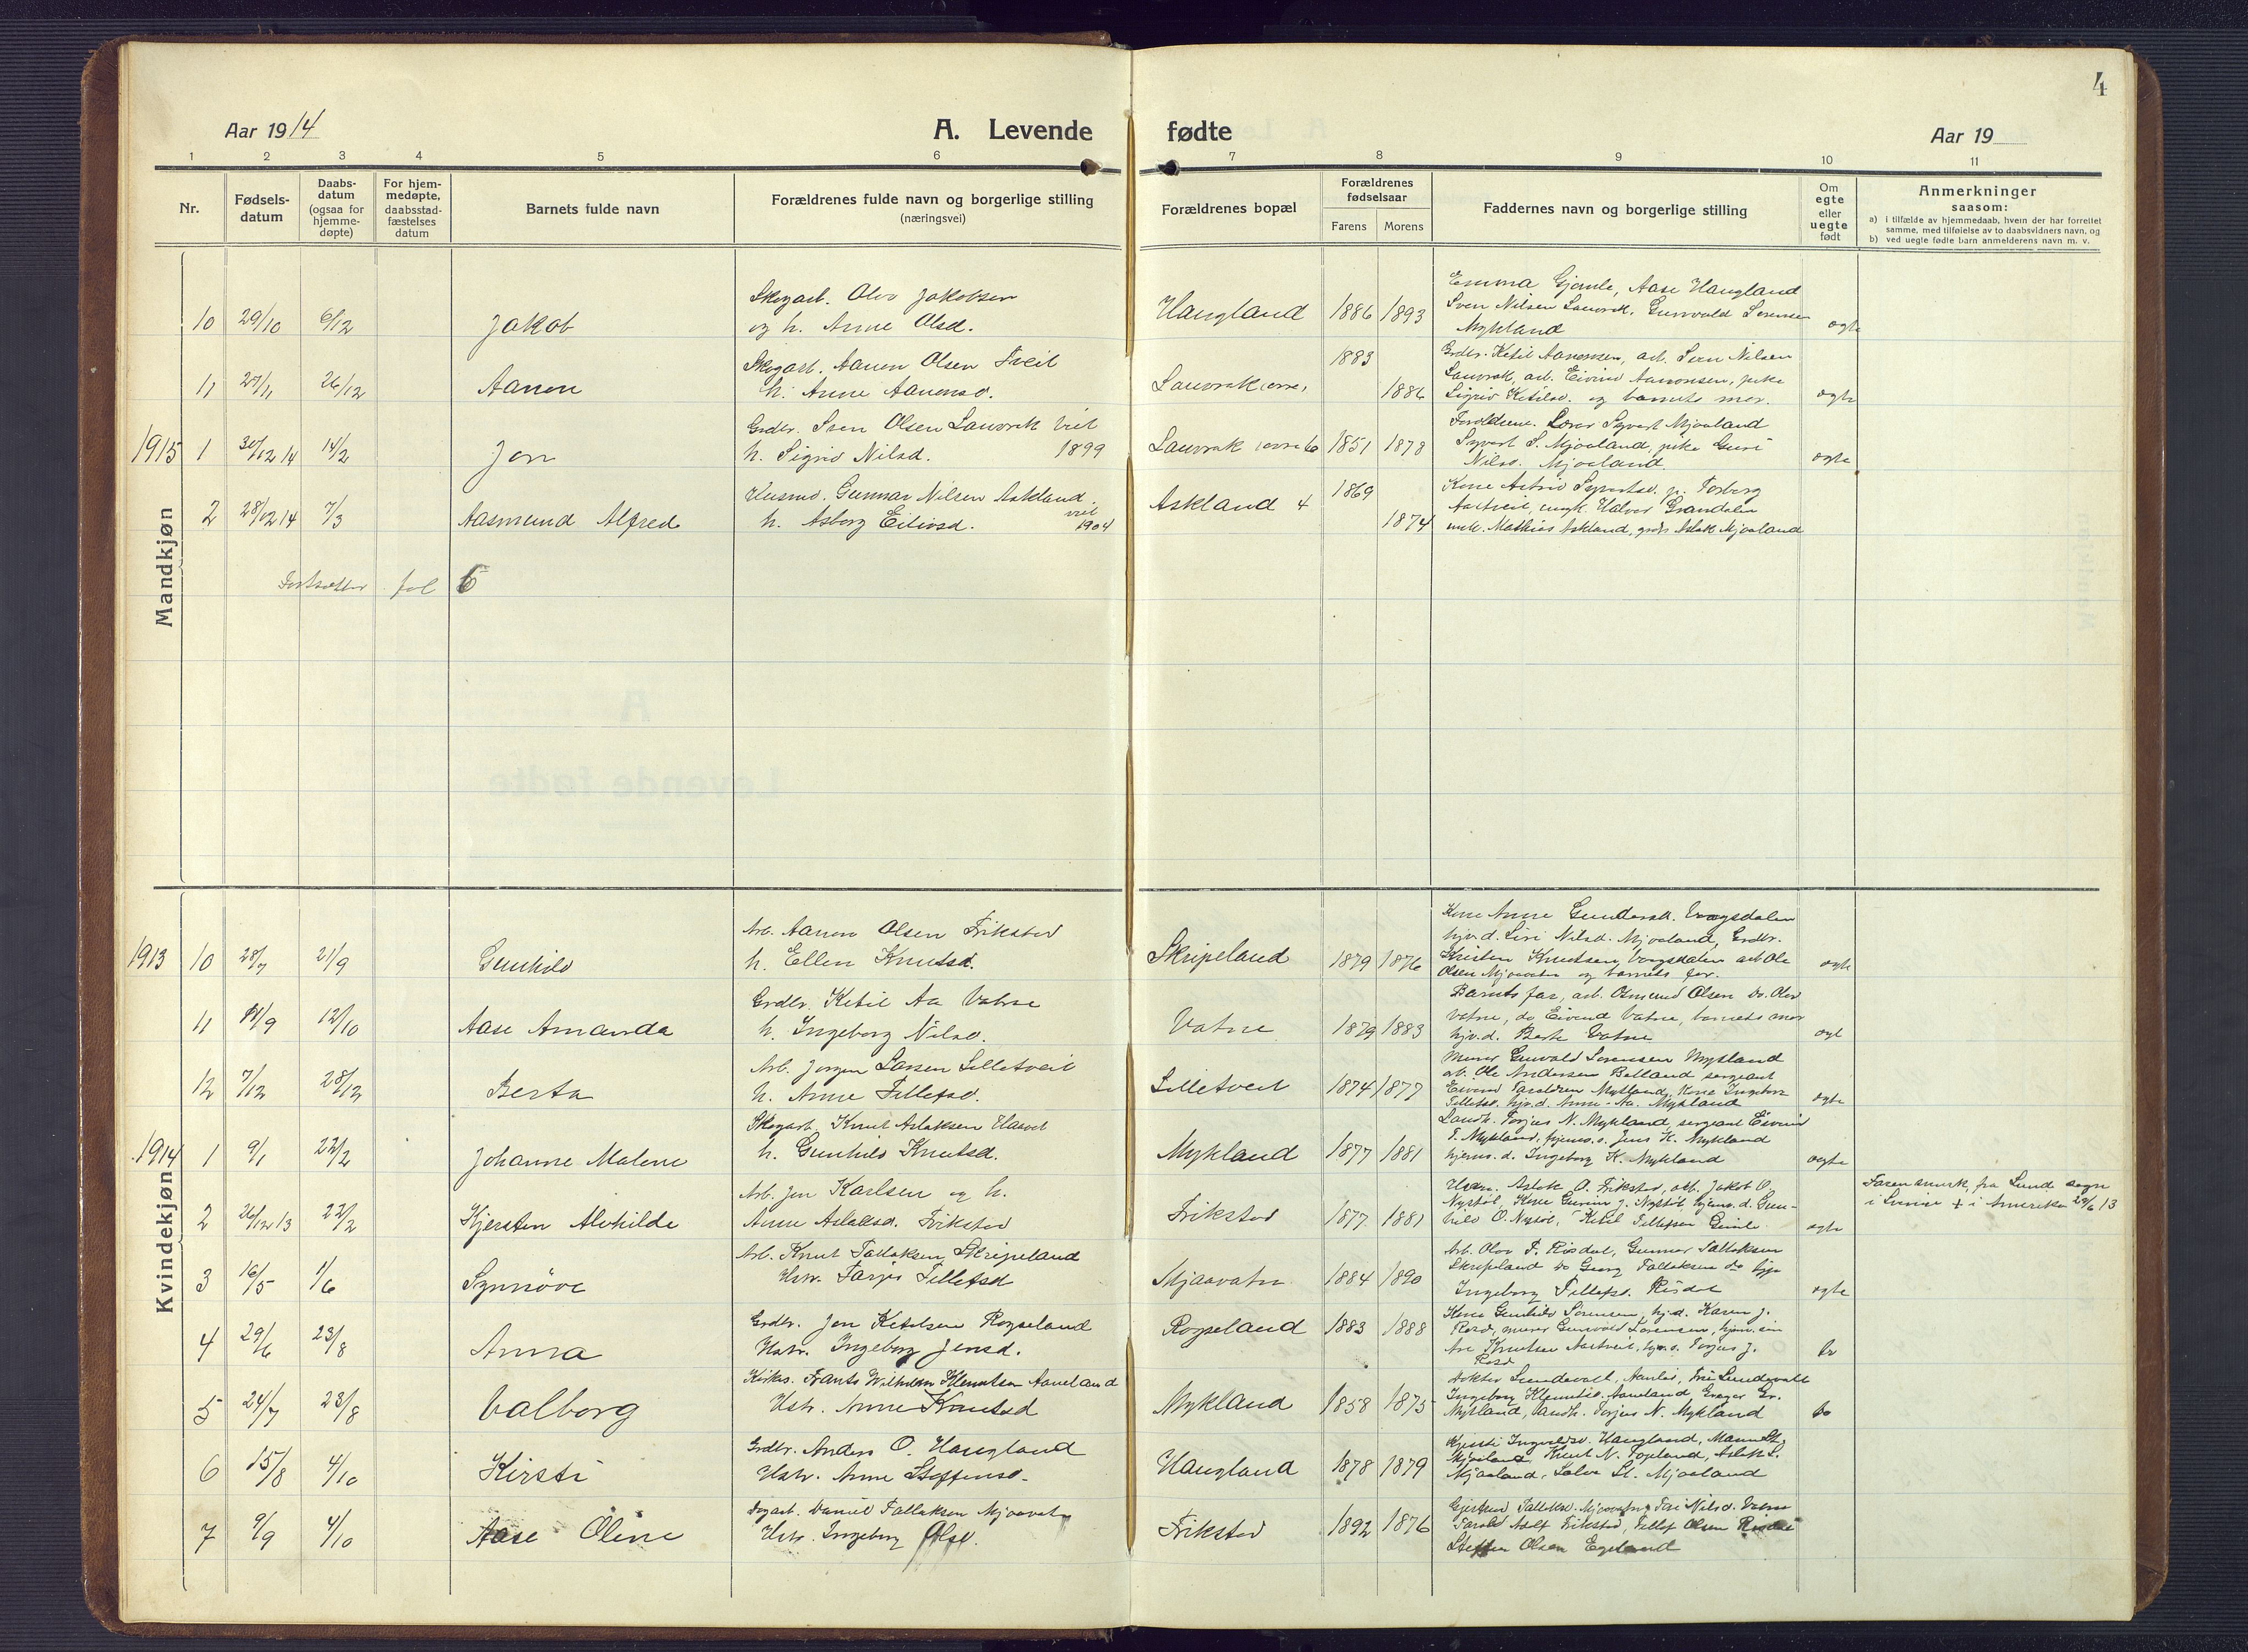 4
Aar 1914
A. Levende fødte
Aar 19
1 2 3 4 5 6 7 8 9 10 11
Nr.
Fødsels-
datum
Daabs-
datum
(ogsaa for
hjemme-
døpte)
For hjem-
medøpte,
daabsstad-
fæstelses
datum
Barnets fulde navn
Forældrenes fulde navn og borgerlige stilling
(næringsvei)
Forældrenes bopæl
Forældrenes
fødselsaar
Farens Morens
Faddernes navn og borgerlige stilling
Om
egte
eller
uegte
født
Anmerkninger
saasom:
a) i tilfælde av hjemmedaab, hvem der har forrettet
samme, med tilføielse av to daabsvidners navn, og
b) ved uegte fødte barn anmelderens navn m. v.
Mandkjøn
10 29/10 6/12 Jakob
Skogarb. Olav Jakobsen
og h. Anne Olsd.
Haugland 1886 1893
Emma Gjemle, Aase Haugland
Sven Nilsen Lauvrak, Gunvald Sørensen
Mykland
egte
11 27/11 26/12 Aanon
Skogarb. Aanon Olsen Tveit
h. Anne Aanonsd.
Lauvrak 1883 1886
Grdbr. Ketil Aanonsen, arb. Sven Nilsen
Lauvrak, arb. Eivind Aanonsen, pike
Sigrid Ketilsd. og barnets mor.
egte
1915 1 30/12 14 14/2 Jon
Grdbr. Sven Olsen Lauvrak viet
h. Sigrid Nilsd. 1899
Lauvrak 1851 1878
Forældrene. Lærer Syvert Mjaaland
Syvert S. Mjaaland, pike Guri
Nilsd. Mjaaland.
egte
2 28/12 14 7/3 Aasmund Alfred
Husmd. Gunnar Nilsen Askland.
h. Asborg Eilivsd. viet
1904
Askland 4 1869 1874
Kone Astrid Syvertsd. p. Torborg
Aastveit, ungk. Halvor Grandalen
ungk. Mathias Askland, grdbr Aslak Mjaaland
Fortsætter fol 6
Kvindekjøn
1913 10 28/7 21/9 Gunhild
Arb. Aanon Olsen Frikstad
h. Ellen Knutsd.
Skripeland 1879 1876
Kone Anne Gundersd. Vaagsdalen
hjv.d. Siri Nilsd. Mjaaland, Grdbr.
Kristen Knutsen Vaagsdalen arb Ole
Olsen Mjaavatn og barnets far.
egte
11 11/9 12/10 Aase Amanda
Grdbr. Ketil Aa Vatne
h. Ingeborg Nilsd.
Vatne 1879 1883
Barnets far, arb. Osmund Olsen do. Olav
Vatne, do Eivind Vatne, barnets mor
hjv.d. Berte Vatne
egt
12 7/12 28/12 Berta
Arb. Jørgen Larsen Lilletveit
h. Anne Tellefsd.
Lilletveit 1874 1877
Murer Gunvald Sørensen Mykland
arb. Ole Andersen Belland sergeant
Eivind Taraldsen Mykland, Kone Ingeborg
Tellefsd. hjv.d. Anne Aa. Mykland
egte
1914 1 9/1 22/2 Johanne Malene
Skogarb. Knut Aslaksen
h. Gunhild Knutsd.
Mykland 1877 1881
Landh. Torjus N. Mykland, sergeant Eivind
T. Mykland, hjems. Jens K. Mykland
hjems. d. Ingeborg K. Mykland
egte
2 26/12 13 22/2 Kjersten Alvhilde
Arb. Jon Karlsen og h.
Anne Aslaksd. Frikstad
Frikstad 1877 1881
Aslak O. Frikstad, arb. Jakob O.
Nystøl, Kone Gurine J. Nystøl, hjems. d. Gun-
hild O. Nystøl, Ketil Tellefsen Gjemle.
egte
Faren svensk, fra Lund sogn
i Sverige † i Amerika 29/6 13
3 16/5 1/6 Synnöve
Arb. Knut Tallaksen Skripeland
Hstr. Tarjer Tellefsd
Mjaavatn 1884 1890
Arb. Olav T. Risdal, Gunnar Tallaksen
Skripeland do Georg Tallaksen do
Ingeborg Tellefsd. Risdal
egte
4 29/6 23/8 Anna
Grdbr. Jon Ketilsen Røyseland
Hstr. Ingeborg Jensd.
Røyseland 1883 1888
Kone Gunhild Sørensen, hj.d. Karen J.
Rosd, murer Gunvald Sørensen,
Are Knutsen Aastveit, Torjus J.
Rosd
do
5 24/7 23/8 Valborg
Kirkes. Frants Wilhelm Klemetsen Aaneland
Hstr. Anne Knutsd
Mykland 1858 1875
Doktor Sundevall, Aamli, Fru Sundevall
Ingeborg Klemetsd. Aaneland Gregar Gr.
Mykland, landh. Torjus N. Mykland
do
6 15/8 4/10 Kirsti
Grdbr. Anders O. Haugland
Hstr. Anne Steffensd.
Haugland 1878 1879
Kirsti Ingvaldsd. Haugland,
Mjaaland, Knut N. Topland, Aslak S.
Mjaaland, Salve St. Mjaaland
7 9/9 4/10 Aase Oline
Dagarb. Daniel Tallaksen Mjaavatn
Hstr. Ingeborg Olsd.
Frikstad 1892 1876
Tallaksd. Mjaavatn, Tore Nilsd. Vatne
Tarald Adolf Frikstad, Tellef Olsen Risdal
Steffen Olsen Egeland